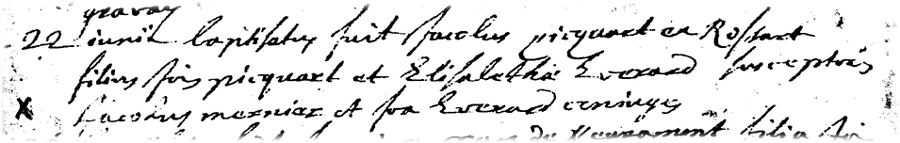 gravay
22 iunii baptisatus fuit Jacobus picquart ex Rossart
filius Jois picquart et Elisabethæ Everard susceptores
X Jacobus mernier et Joa Everard coniuges
de filia Jois